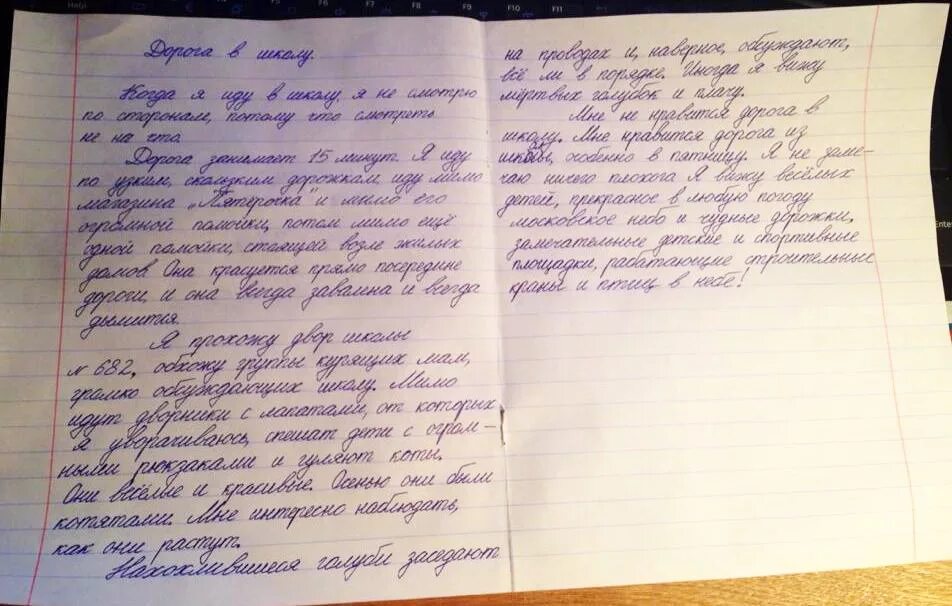 Дорога в школу.
Когда я иду в школу, я не смотрю
по сторонам, потому что смотреть
не на что.
Дорога занимает 15 минут. Я иду
по узким, скользким дорожкам, иду мимо
магазина „Пятерочка" и мимо его
огромной помойки, потом мимо ещё
одной помойки, стоящей возле жилых
домов. Она красуется прямо посередине
дороги, и она всегда завалена и всегда
дымится.
Я прохожу двор школы
№ 682, обхожу группы курящих мам,
громко обсуждающих школу. Мимо
идут дворники с лапатами, от которых
я уворачиваюсь, спешат дети с огром-
ными рюкзаками и гуляют коты.
Они весёлые и красивые. Осенью они были
котятами. Мне интересно наблюдать,
как они растут.
Нахохлившиеся голуби заседают
на проводах и, наверное, обсуждают,
всё ли в порядке. Иногда я вижу
мёртвых голубок и плачу.
Мне не нравится дорога в
школу. Мне нравится дорога из
школы, особенно в пятницу. Я не заме-
чаю ничего плохога Я вижу весёлых
детей, прекрасное в любую погоду
московское небо и чудные дорожки,
замечательные детские и спортивные
площадки, работающие строительные
краны и птиц в небе!
F6
F7
F8
F9
F10
F11